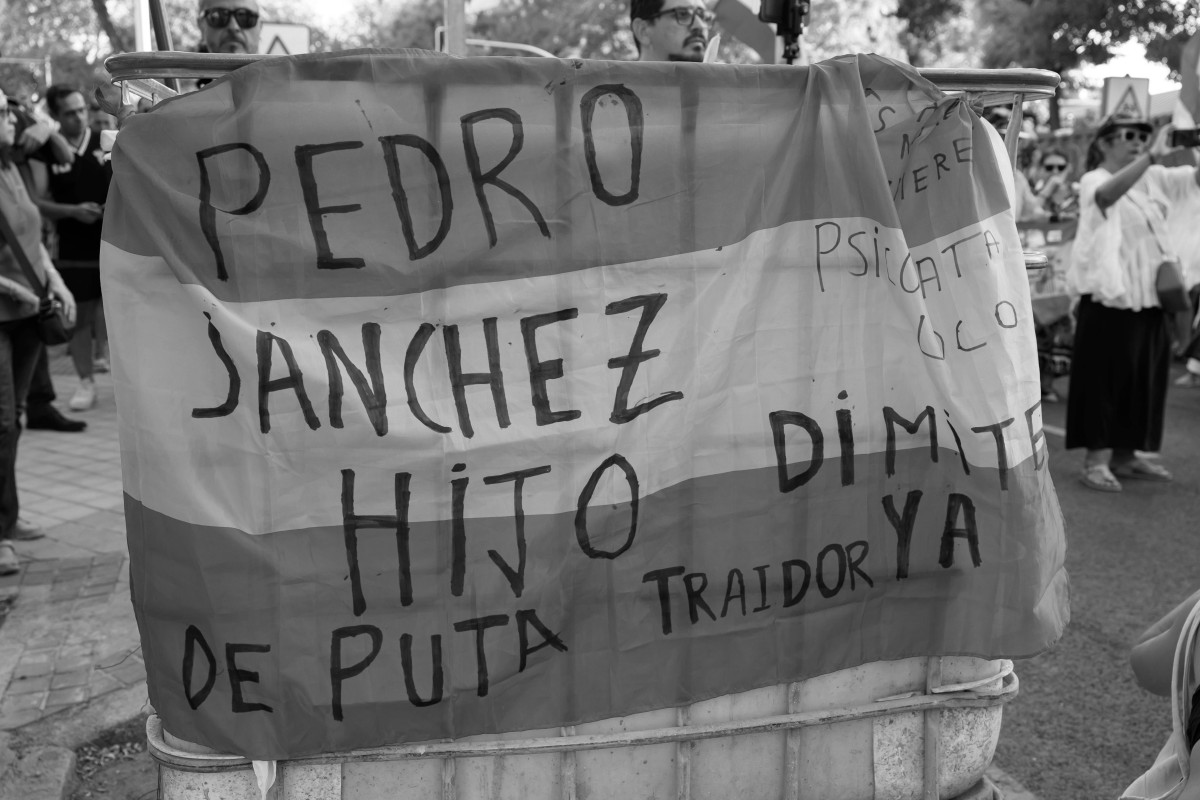 PEDRO
SANCHEZ
HIJO
DE PUTA
PSICATA
LOCO
DIMITE
YA
TRAIDOR